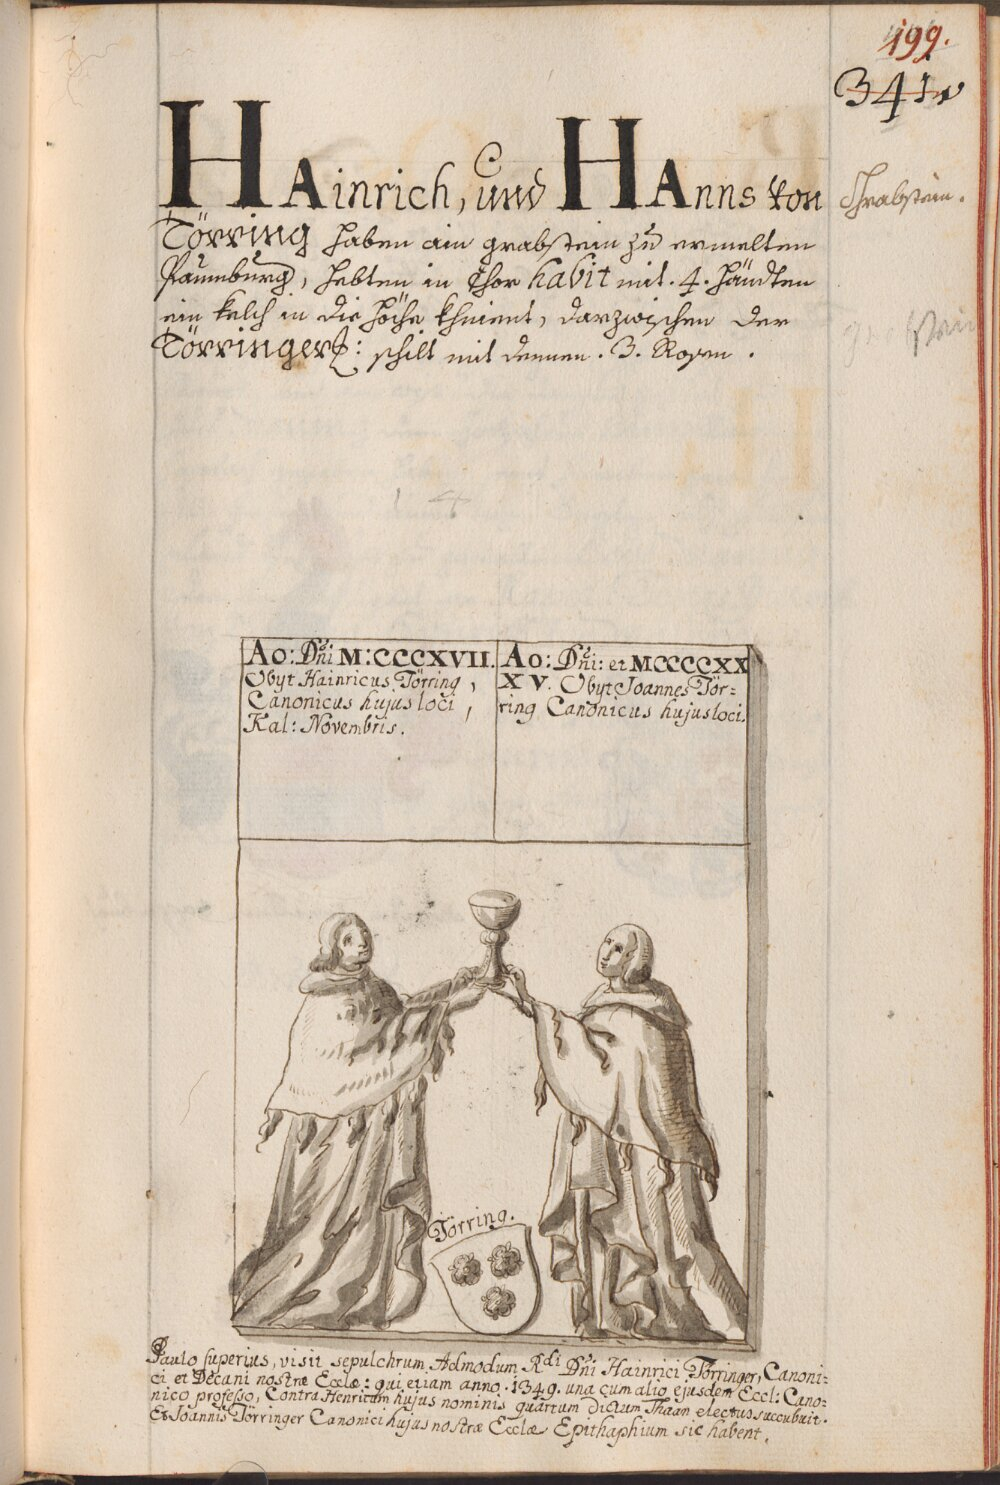 199.
341v
HAinrich, und HAnns von
Törring haben ain grabstein zu ermelten
Paumburg, hebten in Chor habit mit. 4. händten
ein kelch in die höche khnient, darzwischen der
Törringer: schilt mit dennen. 3. Rosen.
Grabstein.
grabstein
14
Ao: Dñi M:CCCXVII.
Obyt Hainricus Törring,
Canonicus hujus loci,
Kal: Novembris.
Ao: Dñi: et MCCCCXX
XV. Obyt Joannes Tör=
ring Canonicus hujus loci.
Törring.
Paulo superius, visit sepulchrum Admodum Rdi Dñi Hainrici Törringer, Canoni=
ci et Decani nostræ Eccle: qui etiam anno. 1349. una cum alio ejusdem Eccl: Cano=
nico professo, Contra Henricum hujus nominis quartum dictum Thaan electus succubuit.
Et Joannis Törringer Canonici hujus nostræ Eccle Epithaphium sic habent.